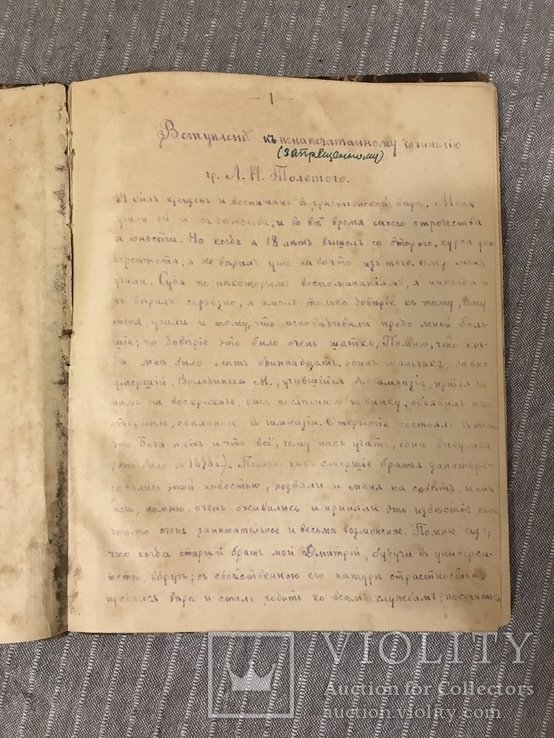 — 1 —
Вступленіе къ ненапечатанному сочиненію
(запрещенному)
гр. Л. Н. Толстого.
Я былъ крещенъ и воспитанъ въ христіанской вѣрѣ. Меня
учили ей и съ дѣтства, и во всё время моего отрочества
и юности. Но когда я 18 лѣтъ вышелъ со второго курса уни-
верситета, я не вѣрилъ уже ни во что изъ того, чему меня
учили. Судя по некоторымъ воспоминаніямъ, я никогда и
не вѣрилъ серьёзно, а имелъ только довѣріе къ тому, чему
меня учили и тому, что исповѣдывали предо мной боль-
шіе; но довѣріе это было очень шатко. Помню, что ког-
да мнѣ было лѣтъ одиннадцать, одинъ мальчикъ, давно
умершій, Володинька М., учившійся въ гимназіи, придя къ
намъ на воскресенье, какъ последнюю новинку, объявилъ намъ
открытіе, сдѣланное въ гимназіи. Открытіе состояло въ томъ
что Бога нѣтъ и что всё, чему насъ учатъ, однѣ выдумки
(это было въ 1838 г.). Помню какъ старшіе братья заинтере-
совались этой новостью, позвали и меня на совѣтъ, и мы
всѣ, помню, очень оживились и приняли это извѣстіе какъ
что-то очень занимательное и весьма возможное. Помню ещё,
что когда старшій братъ мой Дмитрій, будучи въ универси-
тетѣ вдругъ, съ свойственною его натурѣ страстностью,
предался вѣрѣ и сталъ ходить ко всемъ службамъ, поститься
VIOLITY
Auction for Collectors
auction.violity.com